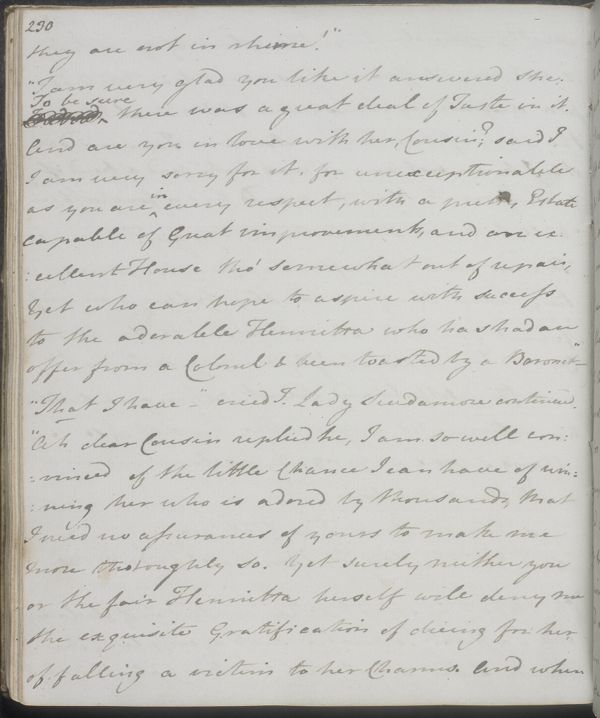 230
they are not in rhime!"
"I am very glad you like it answered she.
To be sure
there was a great deal of Taste in it.
And are you in love with her, Cousin?, said I.
I am very sorry for it, for unexceptionable
in
as you are every respect, with a pretty Estate
capable of Great improvements, and an ex:
:cellent House tho' somewhat out of repair,
Yet who can hope to aspire with success
to the adorable Henrietta who has had an
offer from a Colonel & been toasted by a Baronet"—
"That I have—" cried I. Lady Scudamore continued.
"Ah dear Cousin replied he, I am so well con:
:vinced of the little Chance I can have of win:
:ning her who is adored by thousands, that
I need no assurances of yours to make me
more thoroughly so. Yet surely neither you
or the fair Henrietta herself will deny me
the exquisite Gratification of dieing for her
of falling a victim to her Charms. And when